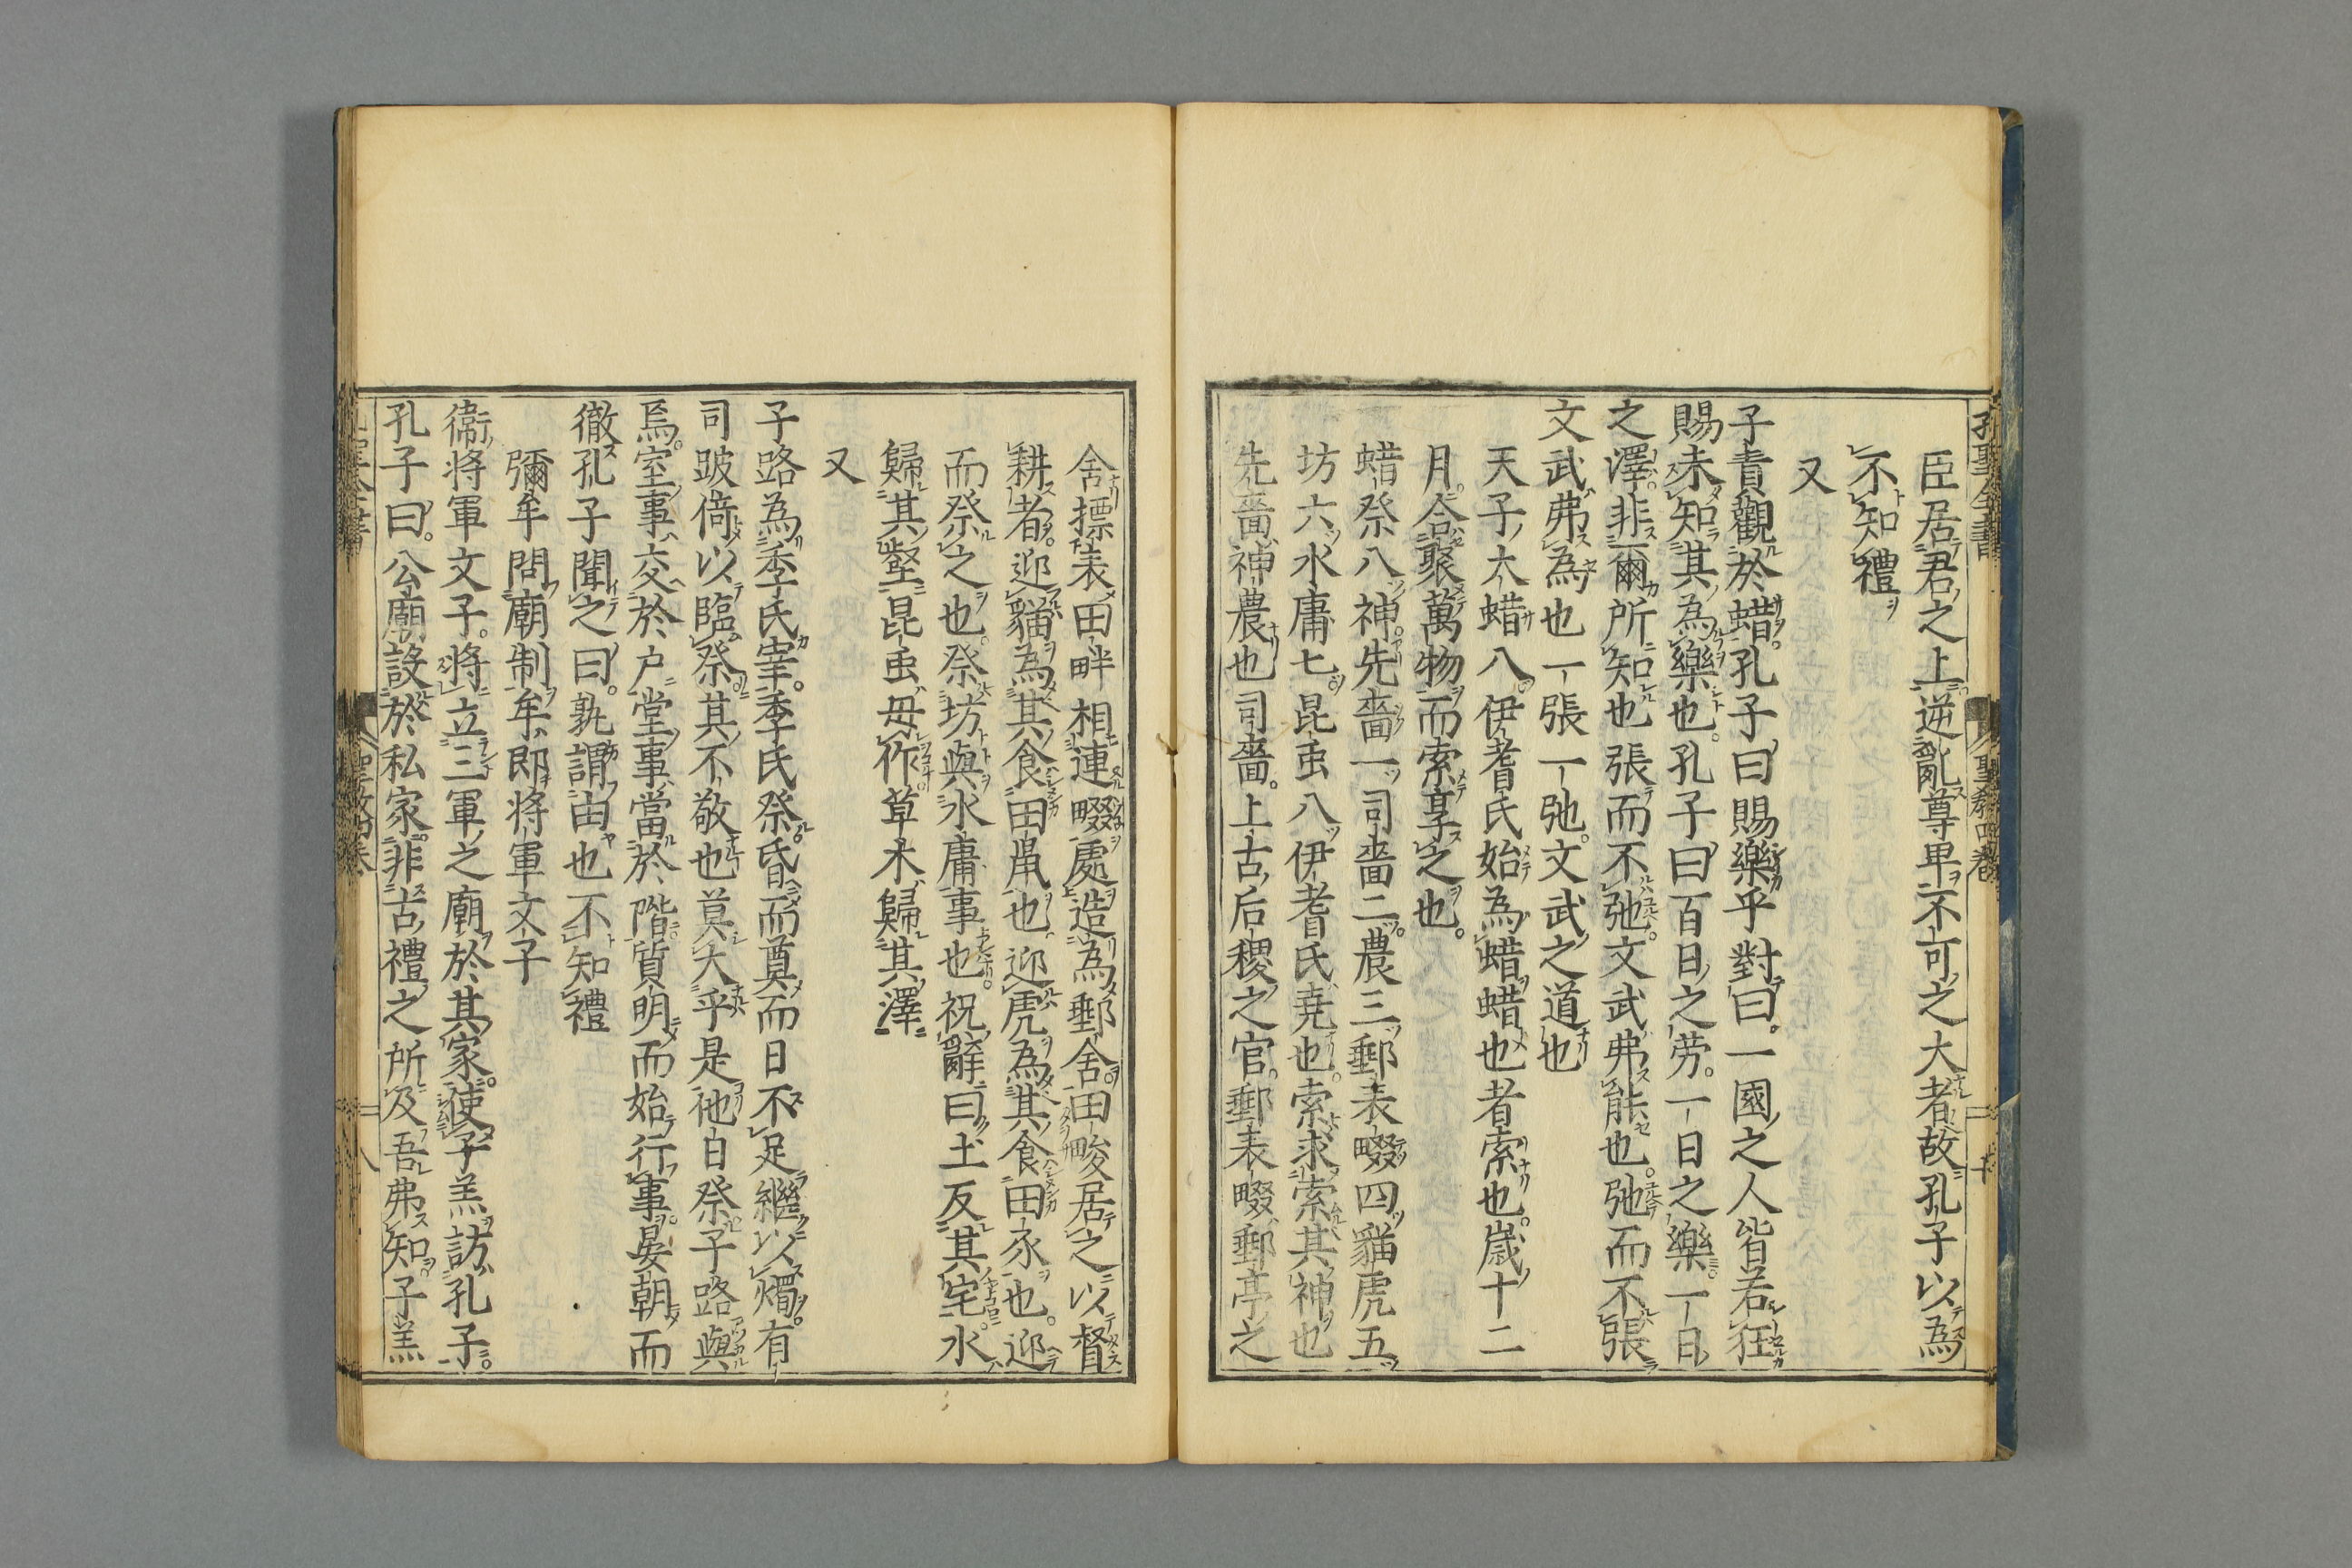 孔聖全書
聖教四卷
臣居君之上逆亂尊卑不可之大者故孔子以為
不知禮
又
子貢觀於蜡孔子曰賜樂乎對曰一國之人皆若狂
賜未知其為樂也孔子曰百日之勞一日之樂一日
之澤非爾所知也張而不弛文武弗能也弛而不張
文武弗為也一張一弛文武之道也
天子大蜡八伊耆氏始為蜡蜡也者索也歲十二
月合聚萬物而索享之也
蜡祭八神先嗇一司嗇二農三郵表畷四貓虎五
坊六水庸七昆虫八伊耆氏堯也索求索其神也
先嗇神農也司嗇上古后稷之官郵表畷郵亭之
舍摽表田畔相連畷處造為郵舍田畯居之以督
耕者迎貓為其食田鼠也迎虎為其食田豕也迎
而祭之也祭坊與水庸事也祝辭曰土反其宅水
歸其壑昆虫毋作草木歸其澤
又
子路為季氏宰季氏祭昏而奠而日不足繼以燭有
司跛倚以臨祭其不敬也莫大乎是他日祭子路與
焉室事交於户堂事當於階質明而始行事晏朝而
徹孔子聞之曰孰謂由也不知禮
彌牟問廟制牟即將軍文子
衞將軍文子將立三軍之廟於其家使子羔訪孔子
孔子曰公廟設於私家非古禮之所及吾弗知子羔